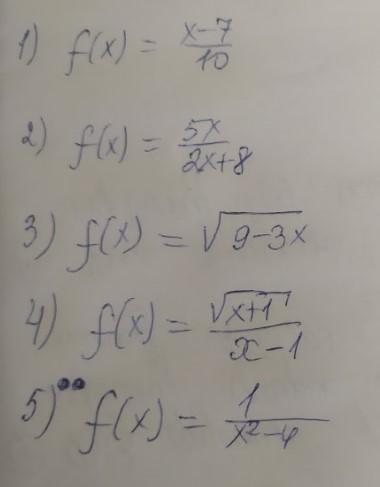 1) f(x) = x-7/10
2) f(x) = 5x/2x+8
3) f(x) = √9-3x
4) f(x) = √x+1/x-1
5) f(x) = 1/x²-4